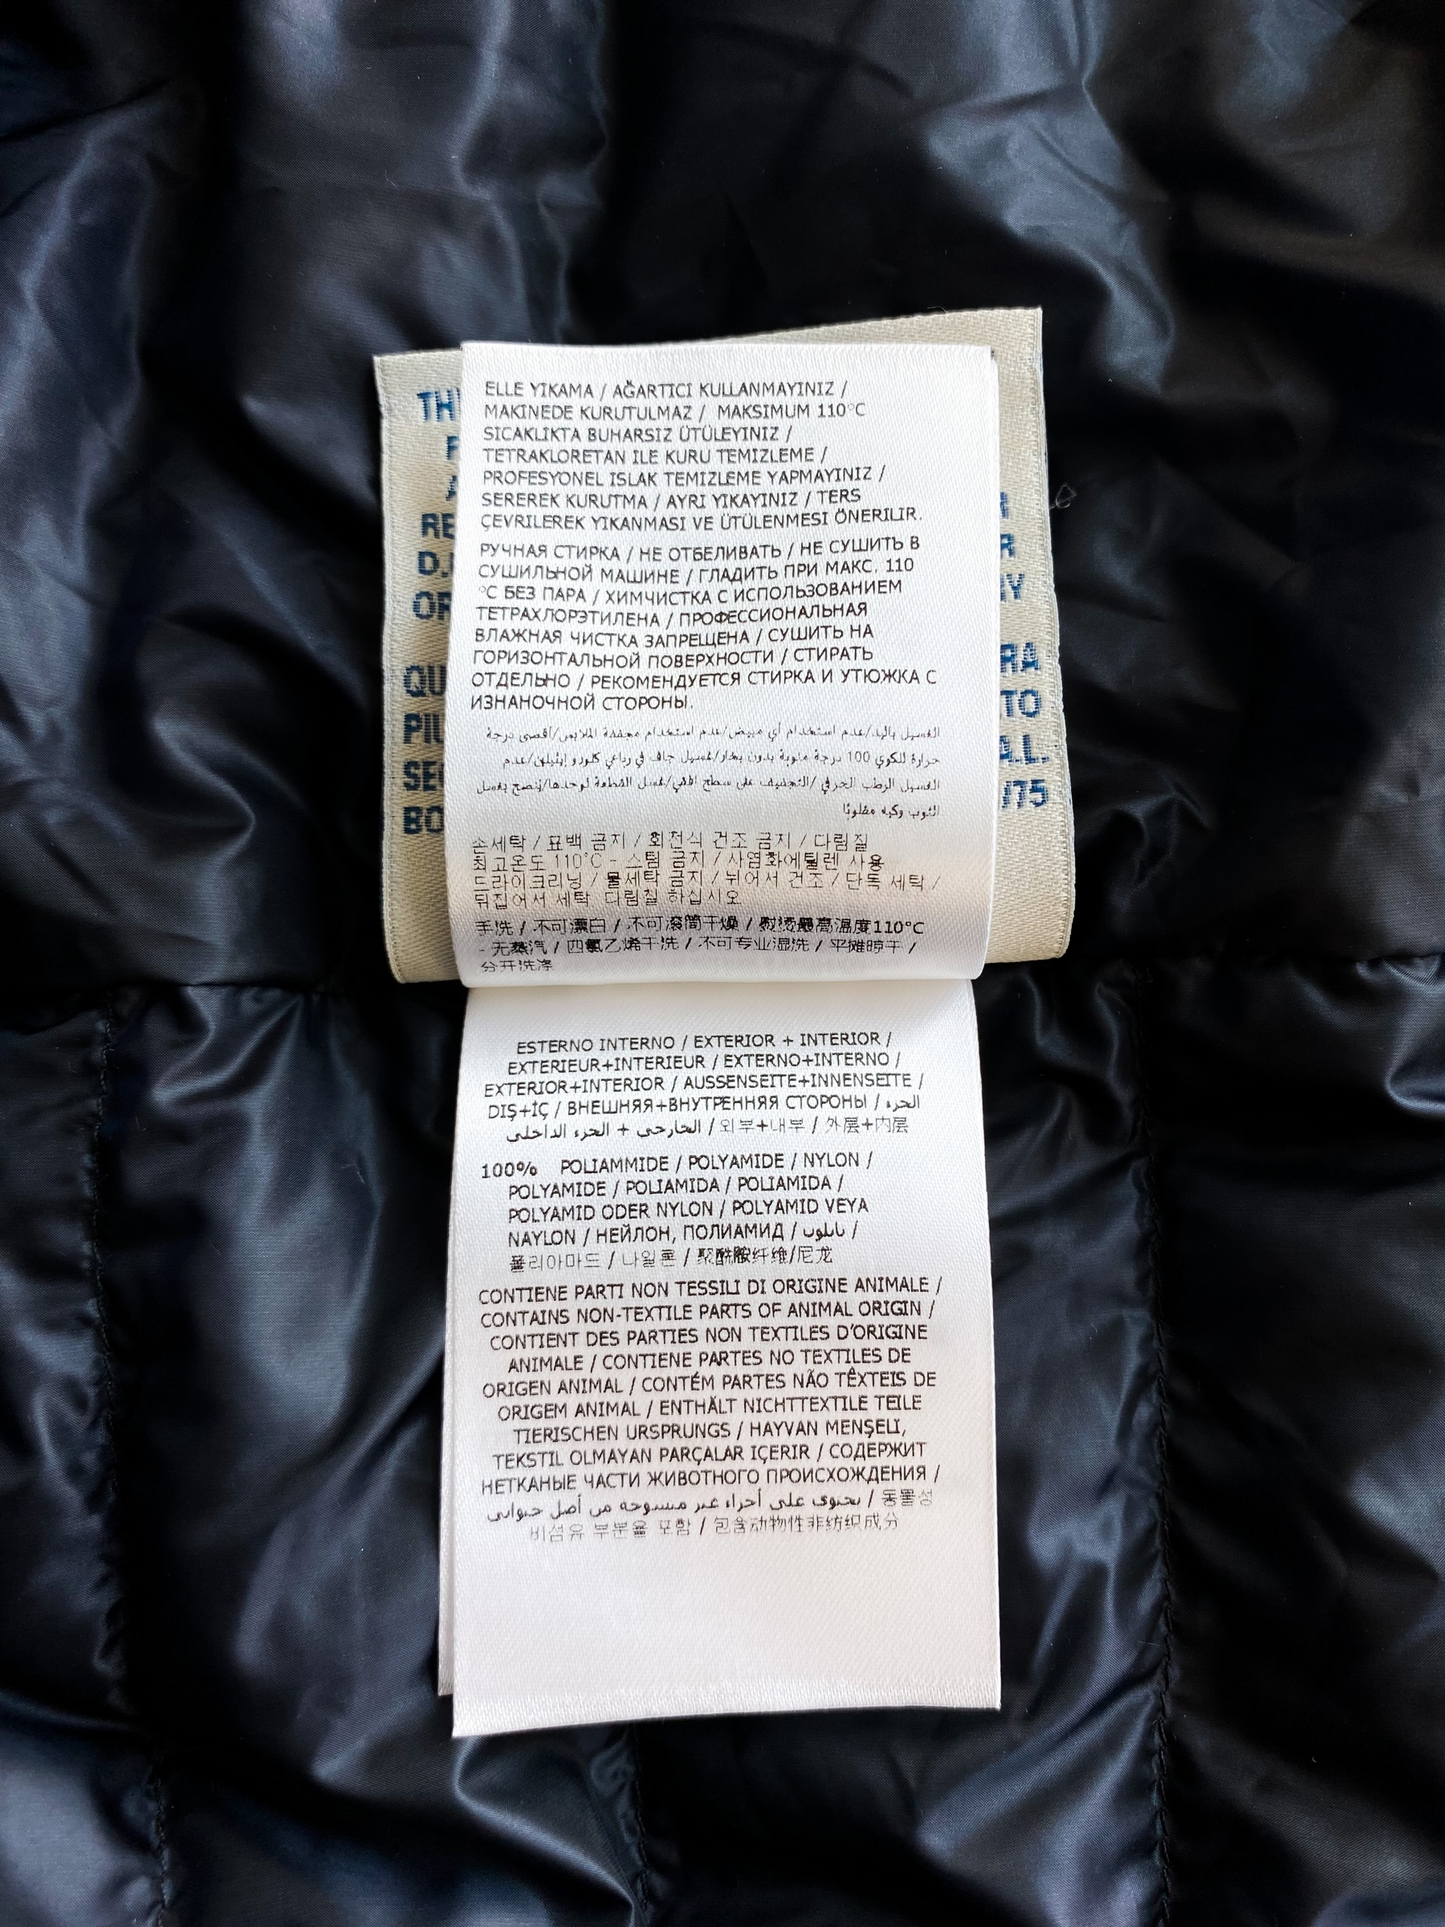 ELLE YIKAMA / AĞARTICI KULLANMAYINIZ /
MAKINEDE KURUTULMAZ / MAKSIMUM 110°C
SICAKLIKTA BUHARSIZ ÜTÜLEYINIZ /
TETRAKLORETAN ILE KURU TEMIZLEME /
PROFESYONEL ISLAK TEMIZLEME YAPMAYINIZ /
SEREREK KURUTMA / AYRI YIKAYINIZ / TERS
ÇEVRILEREK YIKANMASI VE ÜTÜLENMESI ÖNERILIR.
РУЧНАЯ СТИРКА / НЕ ОТБЕЛИВАТЬ / НЕ СУШИТЬ В
СУШИЛЬНОЙ МАШИНЕ / ГЛАДИТЬ ПРИ МАКС. 110
°C БЕЗ ПАРА / ХИМЧИСТКА С ИСПОЛЬЗОВАНИЕМ
ТЕТРАХЛОРЭТИЛЕНА / ПРОФЕССИОНАЛЬНАЯ
ВЛАЖНАЯ ЧИСТКА ЗАПРЕЩЕНА / СУШИТЬ НА
ГОРИЗОНТАЛЬНОЙ ПОВЕРХНОСТИ / СТИРАТЬ
ОТДЕЛЬНО / РЕКОМЕНДУЕТСЯ СТИРКА И УТЮЖКА С
ИЗНАНОЧНОЙ СТОРОНЫ.
الغسيل باليد/عدم استخدام أي مبيض/عدم استخدام مجففة الملابس/أقصى درجة
حرارة للكوي 100 درجة مئوية بدون بخار/غسيل جاف في رباعي كلورو إيثيلين/عدم
الغسيل الرطب الحرفي/التجفيف على سطح أفقي/غسل القطعة لوحدها/يُنصح بغسل
الثوب وكيه مقلوبًا
손세탁 / 표백 금지 / 회전식 건조 금지 / 다림질
최고온도 110°C - 스팀 금지 / 사염화에틸렌 사용
드라이크리닝 / 물세탁 금지 / 뉘어서 건조 / 단독 세탁 /
뒤집어서 세탁, 다림질 하십시오
手洗 / 不可漂白 / 不可滚筒干燥 / 熨烫最高温度110°C
- 无蒸汽 / 四氯乙烯干洗 / 不可专业湿洗 / 平摊晾干 /
分开洗涤
ESTERNO INTERNO / EXTERIOR + INTERIOR /
EXTERIEUR+INTERIEUR / EXTERNO+INTERNO /
EXTERIOR+INTERIOR / AUSSENSEITE+INNENSEITE /
DIŞ+İÇ / ВНЕШНЯЯ+ВНУТРЕННЯЯ СТОРОНЫ / الجزء
الخارجي + الجزء الداخلي / 외부+내부 / 外层+内层
100% POLIAMMIDE / POLYAMIDE / NYLON /
POLYAMIDE / POLIAMIDA / POLIAMIDA /
POLYAMID ODER NYLON / POLYAMID VEYA
NAYLON / НЕЙЛОН, ПОЛИАМИД / نايلون /
폴리아마드 / 나일론 / 聚酰胺纤维/尼龙
CONTIENE PARTI NON TESSILI DI ORIGINE ANIMALE /
CONTAINS NON-TEXTILE PARTS OF ANIMAL ORIGIN /
CONTIENT DES PARTIES NON TEXTILES D'ORIGINE
ANIMALE / CONTIENE PARTES NO TEXTILES DE
ORIGEN ANIMAL / CONTÉM PARTES NÃO TÊXTEIS DE
ORIGEM ANIMAL / ENTHÄLT NICHTTEXTILE TEILE
TIERISCHEN URSPRUNGS / HAYVAN MENŞELI,
TEKSTIL OLMAYAN PARÇALAR IÇERIR / СОДЕРЖИТ
НЕТКАНЫЕ ЧАСТИ ЖИВОТНОГО ПРОИСХОЖДЕНИЯ /
يحتوي على أجزاء غير منسوجة من أصل حيواني / 동물성
비섬유 부분을 포함 / 包含动物性非纺织成分